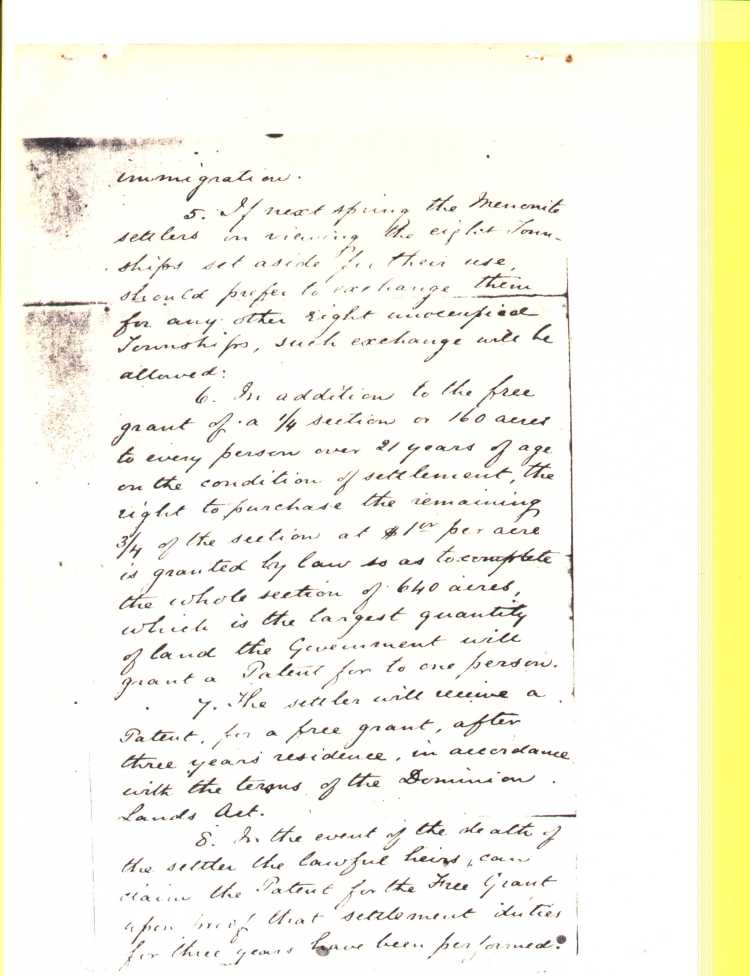 immigration.
5. If next spring the Menonite
settlers on viewing the eight Town-
ships set aside for their use,
should prefer to exchange them
for any other eight unoccupied
Townships, such exchange will be
allowed:
6. In addition to the free
grant of a 1/4 section or 160 acres
to every person over 21 years of age
on the condition of settlement, the
right to purchase the remaining
3/4 of the section at $1 per acre
is granted by law so as to complete
the whole section of 640 acres,
which is the largest quantity
of land the Government will
grant a Patent for to one person.
7. The settler will receive a
Patent, for a free grant, after
three years' residence, in accordance
with the terms of the Dominion
Lands Act.
8. In the event of the death of
the settler the lawful heirs, can
claim the Patent for the Free Grant
upon proof that settlement duties
for three years have been performed.